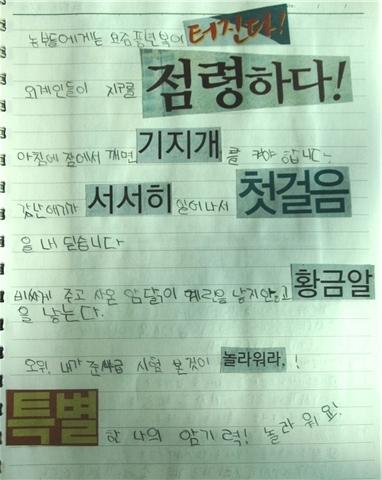 농부들에게는 요즘 풍년 복이 터진다!
외계인들이 지구를 점령하다!
아침에 잠에서 깨면 기지개를 켜야 합니다.
갓난애기가 서서히 일어나서 첫걸음
을 내 딛습니다
비싸게 주고 사온 암닭이 계란을 낳지않고 황금알
을 낳는다.
오위, 내가 준4급 시험 본것이 놀라워라, !
특별한 나의 암기력! 놀라워요!